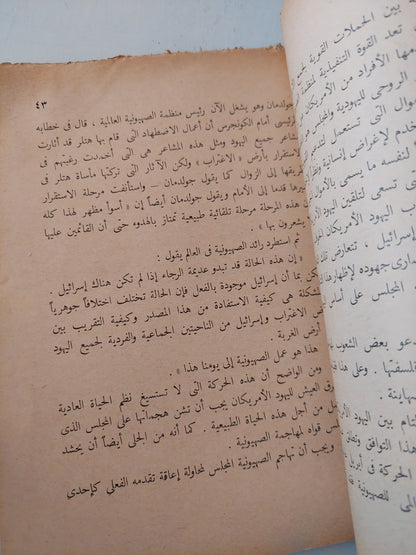 ٤٣
جولدمان وهو يشغل الآن رئيس منظمة الصهيونية العالمية ، قال فى خطابه
الرئيسى أمام الكونجرس أن أعمال الاضطهاد التى قام بها هتلر قد أثارت
مشاعر جميع اليهود ومثل هذه المشاعر هى التى أخمدت رغبتهم فى
الاستقرار بأرض « الاغتراب » ولكن الآثار التى تركتها مأساة هتلر فى
طريقها إلى الزوال كما يقول جولدمان — واستأنفت مرحلة الاستقرار
سيرها قدما إلى الأمام ويقول جولدمان أيضاً إن « أسوأ مظهر لهذا كله
أن هذه المرحلة مرحلة تلقائية طبيعية تمتاز بالهدوء حتى أن القائمين عليها
يشعرون بها » .
ثم استطرد رائد الصهيونية فى العالم يقول :
« إن هذه الحالة قد تبدو عديمة الرجاء إذا لم تكن هناك إسرائيل .
ولكن بما أن إسرائيل موجودة بالفعل فإن الحالة تختلف اختلافاً جوهرياً
المشكلة هى كيفية الاستفادة من هذا المصدر وكيفية التقريب بين
أرض الاغتراب وإسرائيل من الناحيتين الجماعية والفردية لجميع اليهود
أرض الغربة .
هذا هو عمل الصهيونية إلى يومنا هذا » .
ومن الواضح أن هذه الحركة التى لا تستسيغ نظم الحياة العادية
وطرق العيش لليهود الأمريكان يجب أن تشن هجماتها على المجلس الذى
يعمل من أجل هذه الحياة الطبيعية . كما أنه من الجلى أيضاً أن يحشد
المجلس قواه لمهاجمة الصهيونية .
ويجب أن تهاجم الصهيونية المجلس لمحاولة إعاقة تقدمه الفعلى كإحدى
بين الحملات القوية
تعد القوة التنفيذية
الأفراد من الأمريكان
الروسى لليهودية والمجلس
وال التى تستعمل
تخدم لأغراض إنسانية
لنفسه ما يسمى بالأموال
تسعى لتلقين اليهود
اليهود الأمريكان
إسرائيل ، تتعارض
جهوده لإظهار
المجلس على أساس
يدعو بعض الشعوب
فلسفتها . وعلى هذا
صهاينة .
التام بين اليهود
هذا التوافق
الحركة فى أبريل
للصهيونية